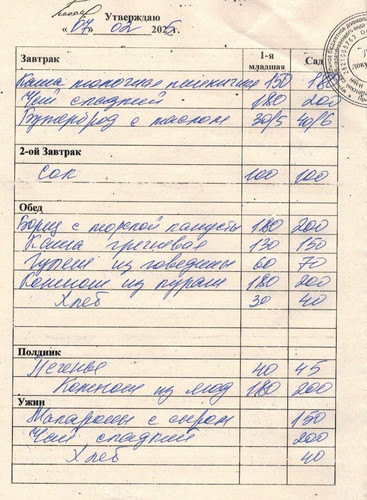 Утверждаю
« 07 » 02 2025
Завтрак 1-я младшая Сад
Каша молочная пшеничная 150 180
Чай сладкий 180 200
Бутерброд с маслом 30/5 40/6
2-ой Завтрак
Сок 100 100
Обед
Борщ с морской капусты 180 200
Каша гречневая 130 150
Гуляш из говядины 60 70
Компот из кураги 180 200
Хлеб 30 40
Полдник
Печенье 40 45
Компот из ягод 180 200
Ужин
Макароны с сыром 150
Чай сладкий 200
Хлеб 40